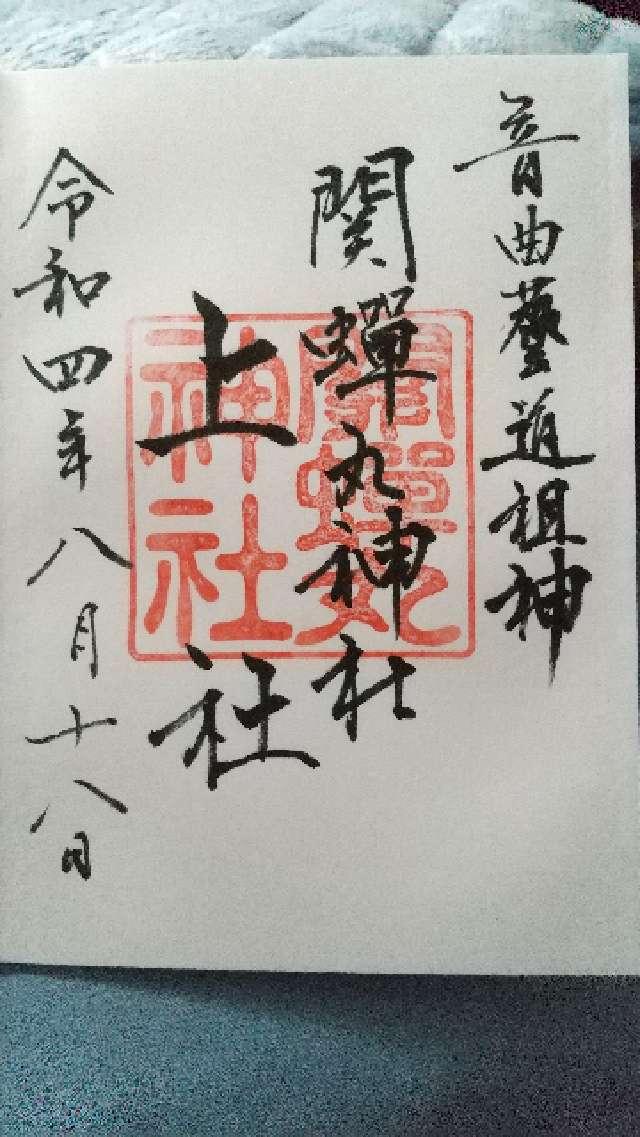 音曲藝道祖神
関蟬丸神社
上社
令和四年八月十八日
関蟬丸
神社